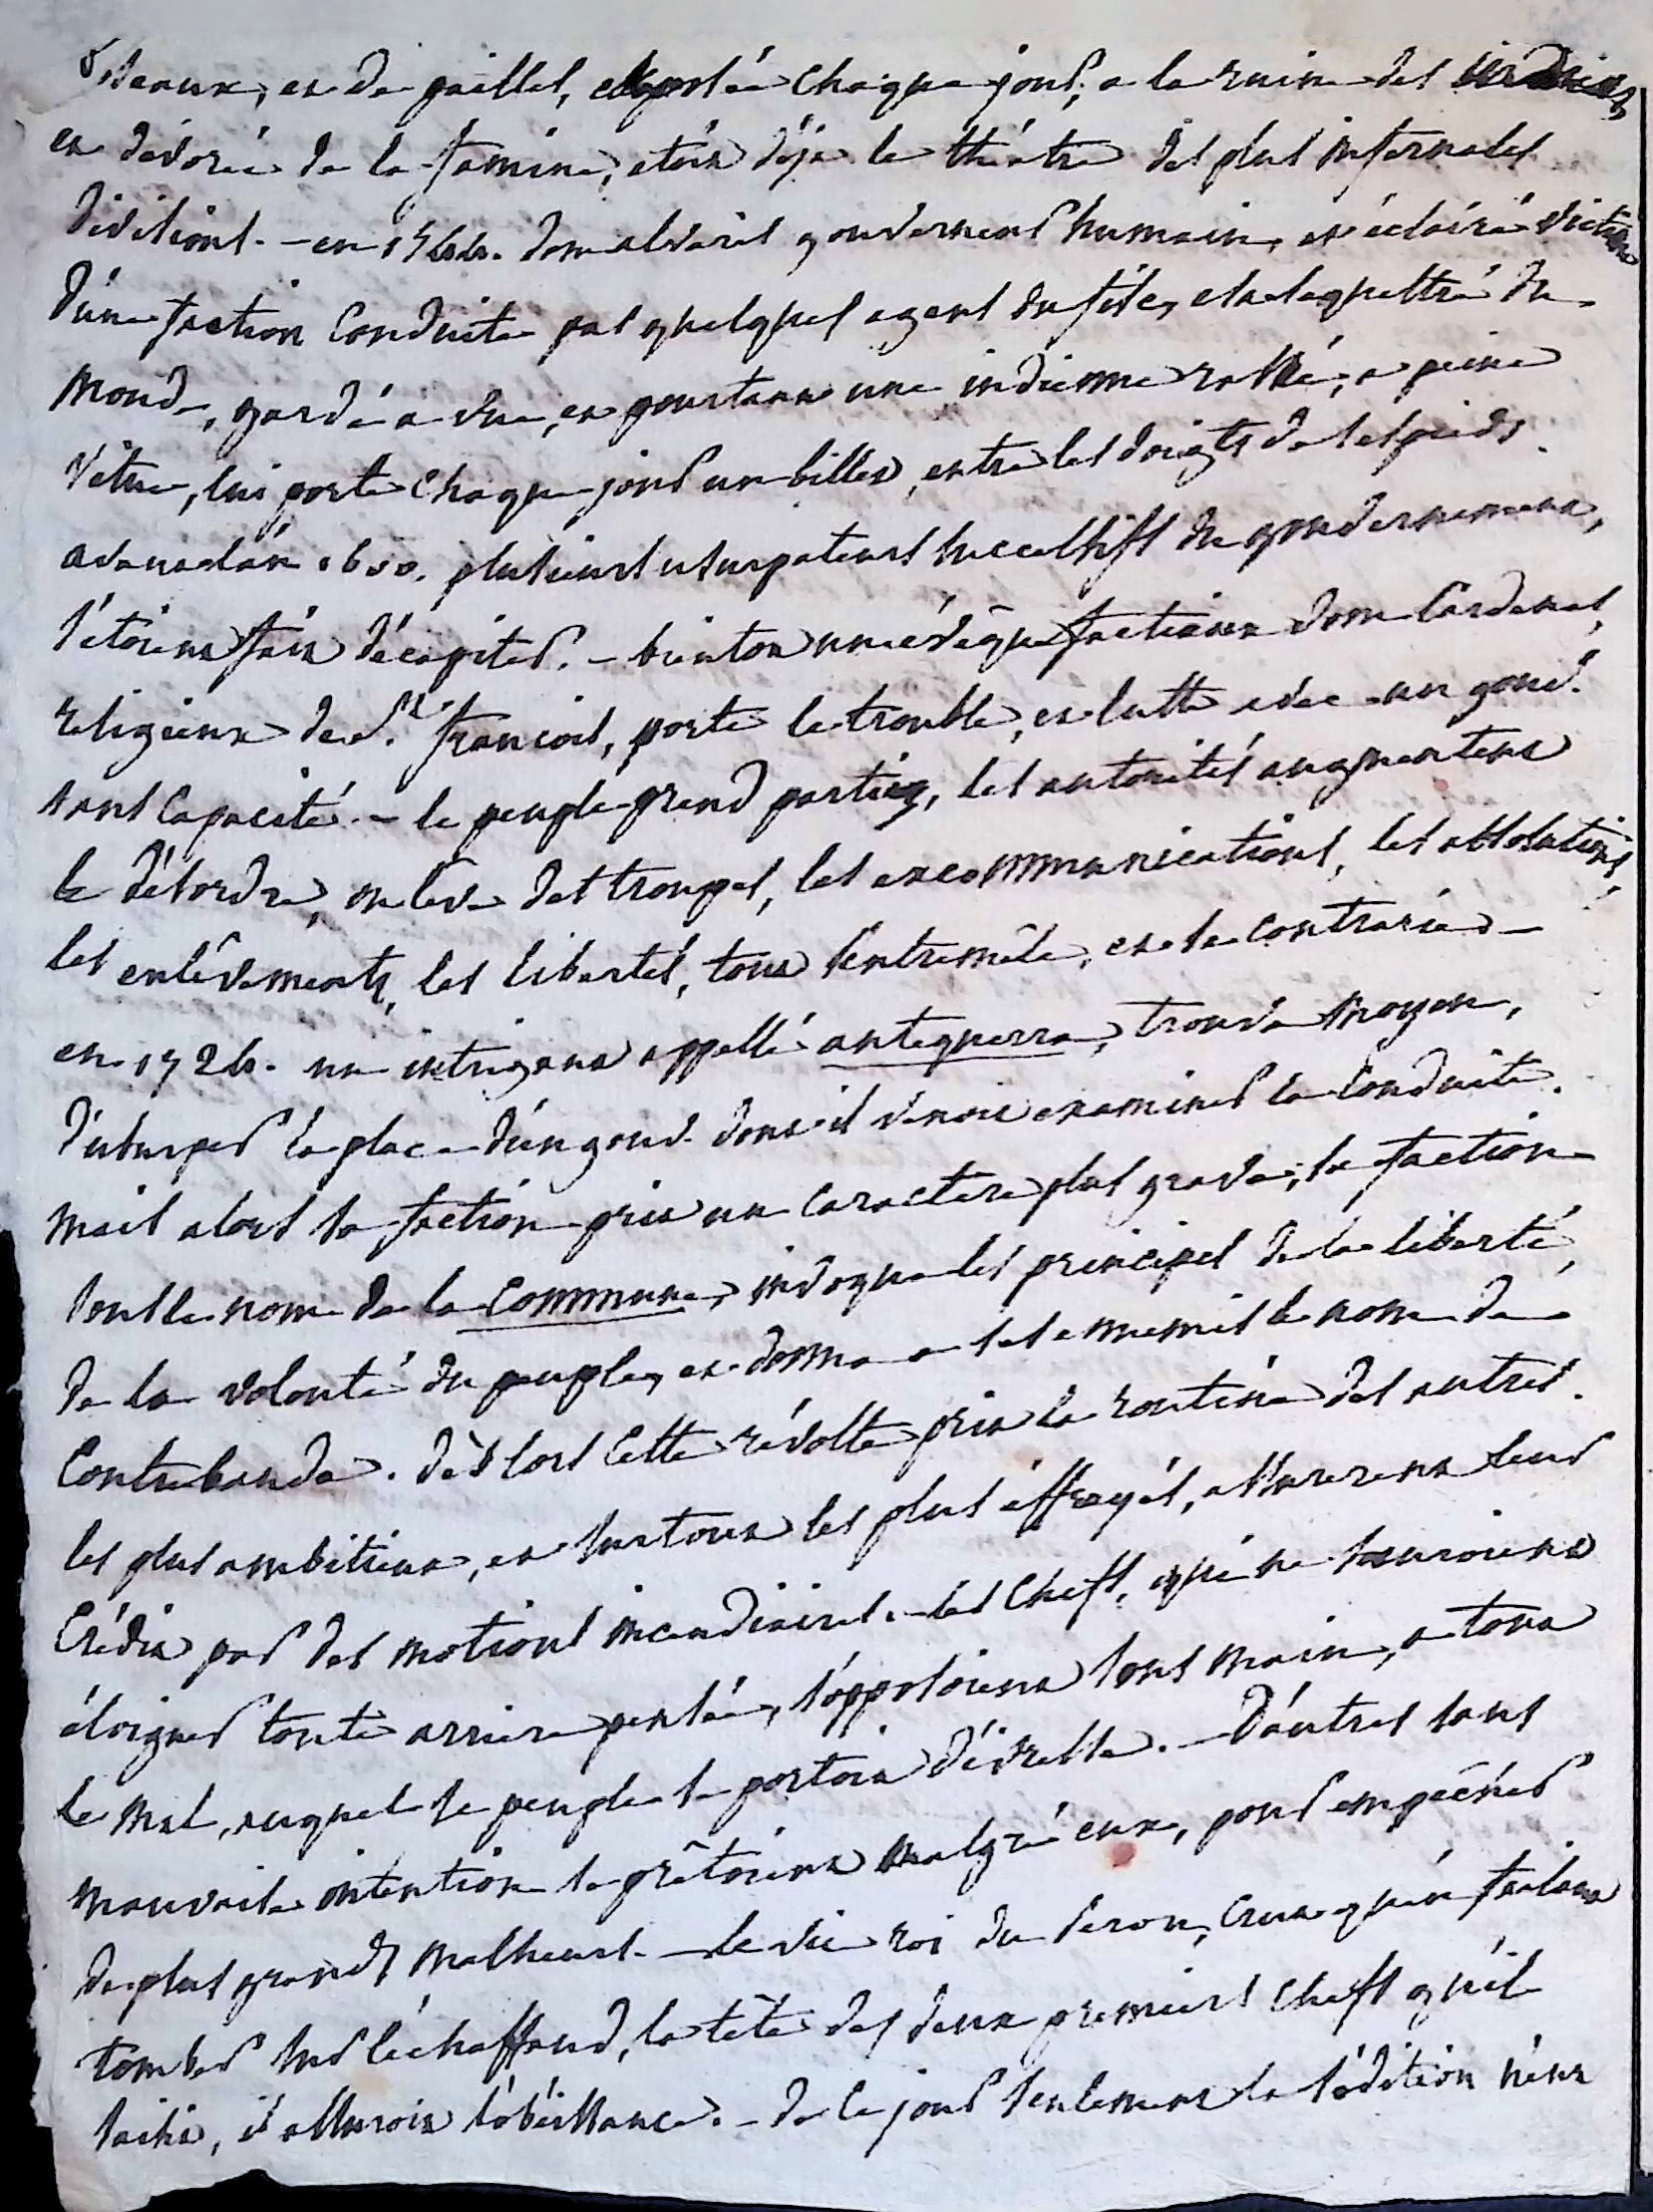 roseaux, et de pailles, exposée chaque jour, a la ruine des
et dévorée de la famine, étoit déja le théatre des plus infernales
divisions. - en 1544. dom alvarès gouverneur humain, et éclairé victime
d'une faction conduite par quelques agens du fisc, est séquestré du
monde, gardé a vue, et pourtant une indienne rasée, a peine
vétue, lui porte chaque jour un billet, entre les doigts de ses pieds.
avant l'an 1600. plusieurs usurpateurs successifs du gouvernement,
s'étoient fait décapiter. - bientot un évêque factieux dom Cardenas,
religieux de St. françois, porte le trouble, et lutte avec un gouvr.
sans capacité. - le peuple prend partie, les autorités augmentent
le désordre, on léve des troupes, les excommunications, les absolutions,
les enlêvements, les libertés, tout s'entremêle, et se contrarie -
en 1724. un intrigant appellé antequerra, trouva moyen,
d'usurper la place d'un gouvr. dont il venoit examiner la conduite.
mais alors la faction prit un caractere plus grave; la faction
sous le nom de la commune, invoqua les principes de la liberté,
de la volonté du peuple, et donna a ses ennemis le nom de
contrebande. dès lors cette révolte prit la routine des autres.
les plus ambitieux, et surtout les plus effrayés, assurerent leur
crédit par des motions incendiaires. - les chefs, qui ne sauroient
éloigner toute arriere pensée, s'opposoient sous main, a tout
le mal, auquel le peuple se portoit d'ivresse. - D'autres sans
mauvaise intention se prêtoient malgré eux, pour empêcher
de plus grands malheurs. - le vice roi du Perou, crut qu'en faisant
tomber sur l'échaffaud, la tête des deux premiers chefs qu'il
saisit, il assuroit l'obéissance. - de ce jour seulement la sédition n'eut